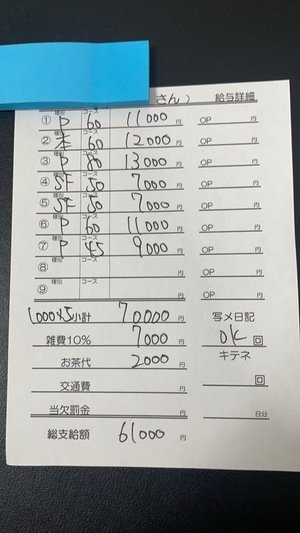 さん) 給与詳細
① 種別 P コース 60 11000 円 OP 円
② 種別 本 コース 60 12000 円 OP 円
③ 種別 P コース 80 13000 円 OP 円
④ 種別 SF コース 50 7000 円 OP 円
⑤ 種別 SF コース 50 7000 円 OP 円
⑥ 種別 P コース 60 11000 円 OP 円
⑦ 種別 P コース 45 9000 円 OP 円
⑧ 種別 コース 円 OP 円
⑨ 種別 コース 円 OP 円
1000×5 小計 70000 円 写メ日記
雑費10% 7000 円 OK 回
お茶代 2000 円 キテネ
交通費 円 回
当欠罰金 円 日分
総支給額 61000 円